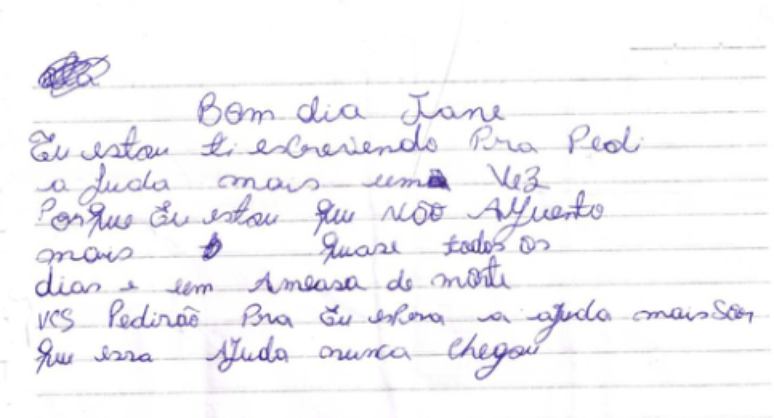 Bom dia Jane
Eu estou ti escrevendo Pra Pedi
a Juda mais uma Vez
Porque Eu estou que NÃO AGuento
mais quase todos os
dias e um Ameasa de morte
VCS Pedirão Pra Eu espera a ajuda mais Son
que essa AJuda nunca chegou